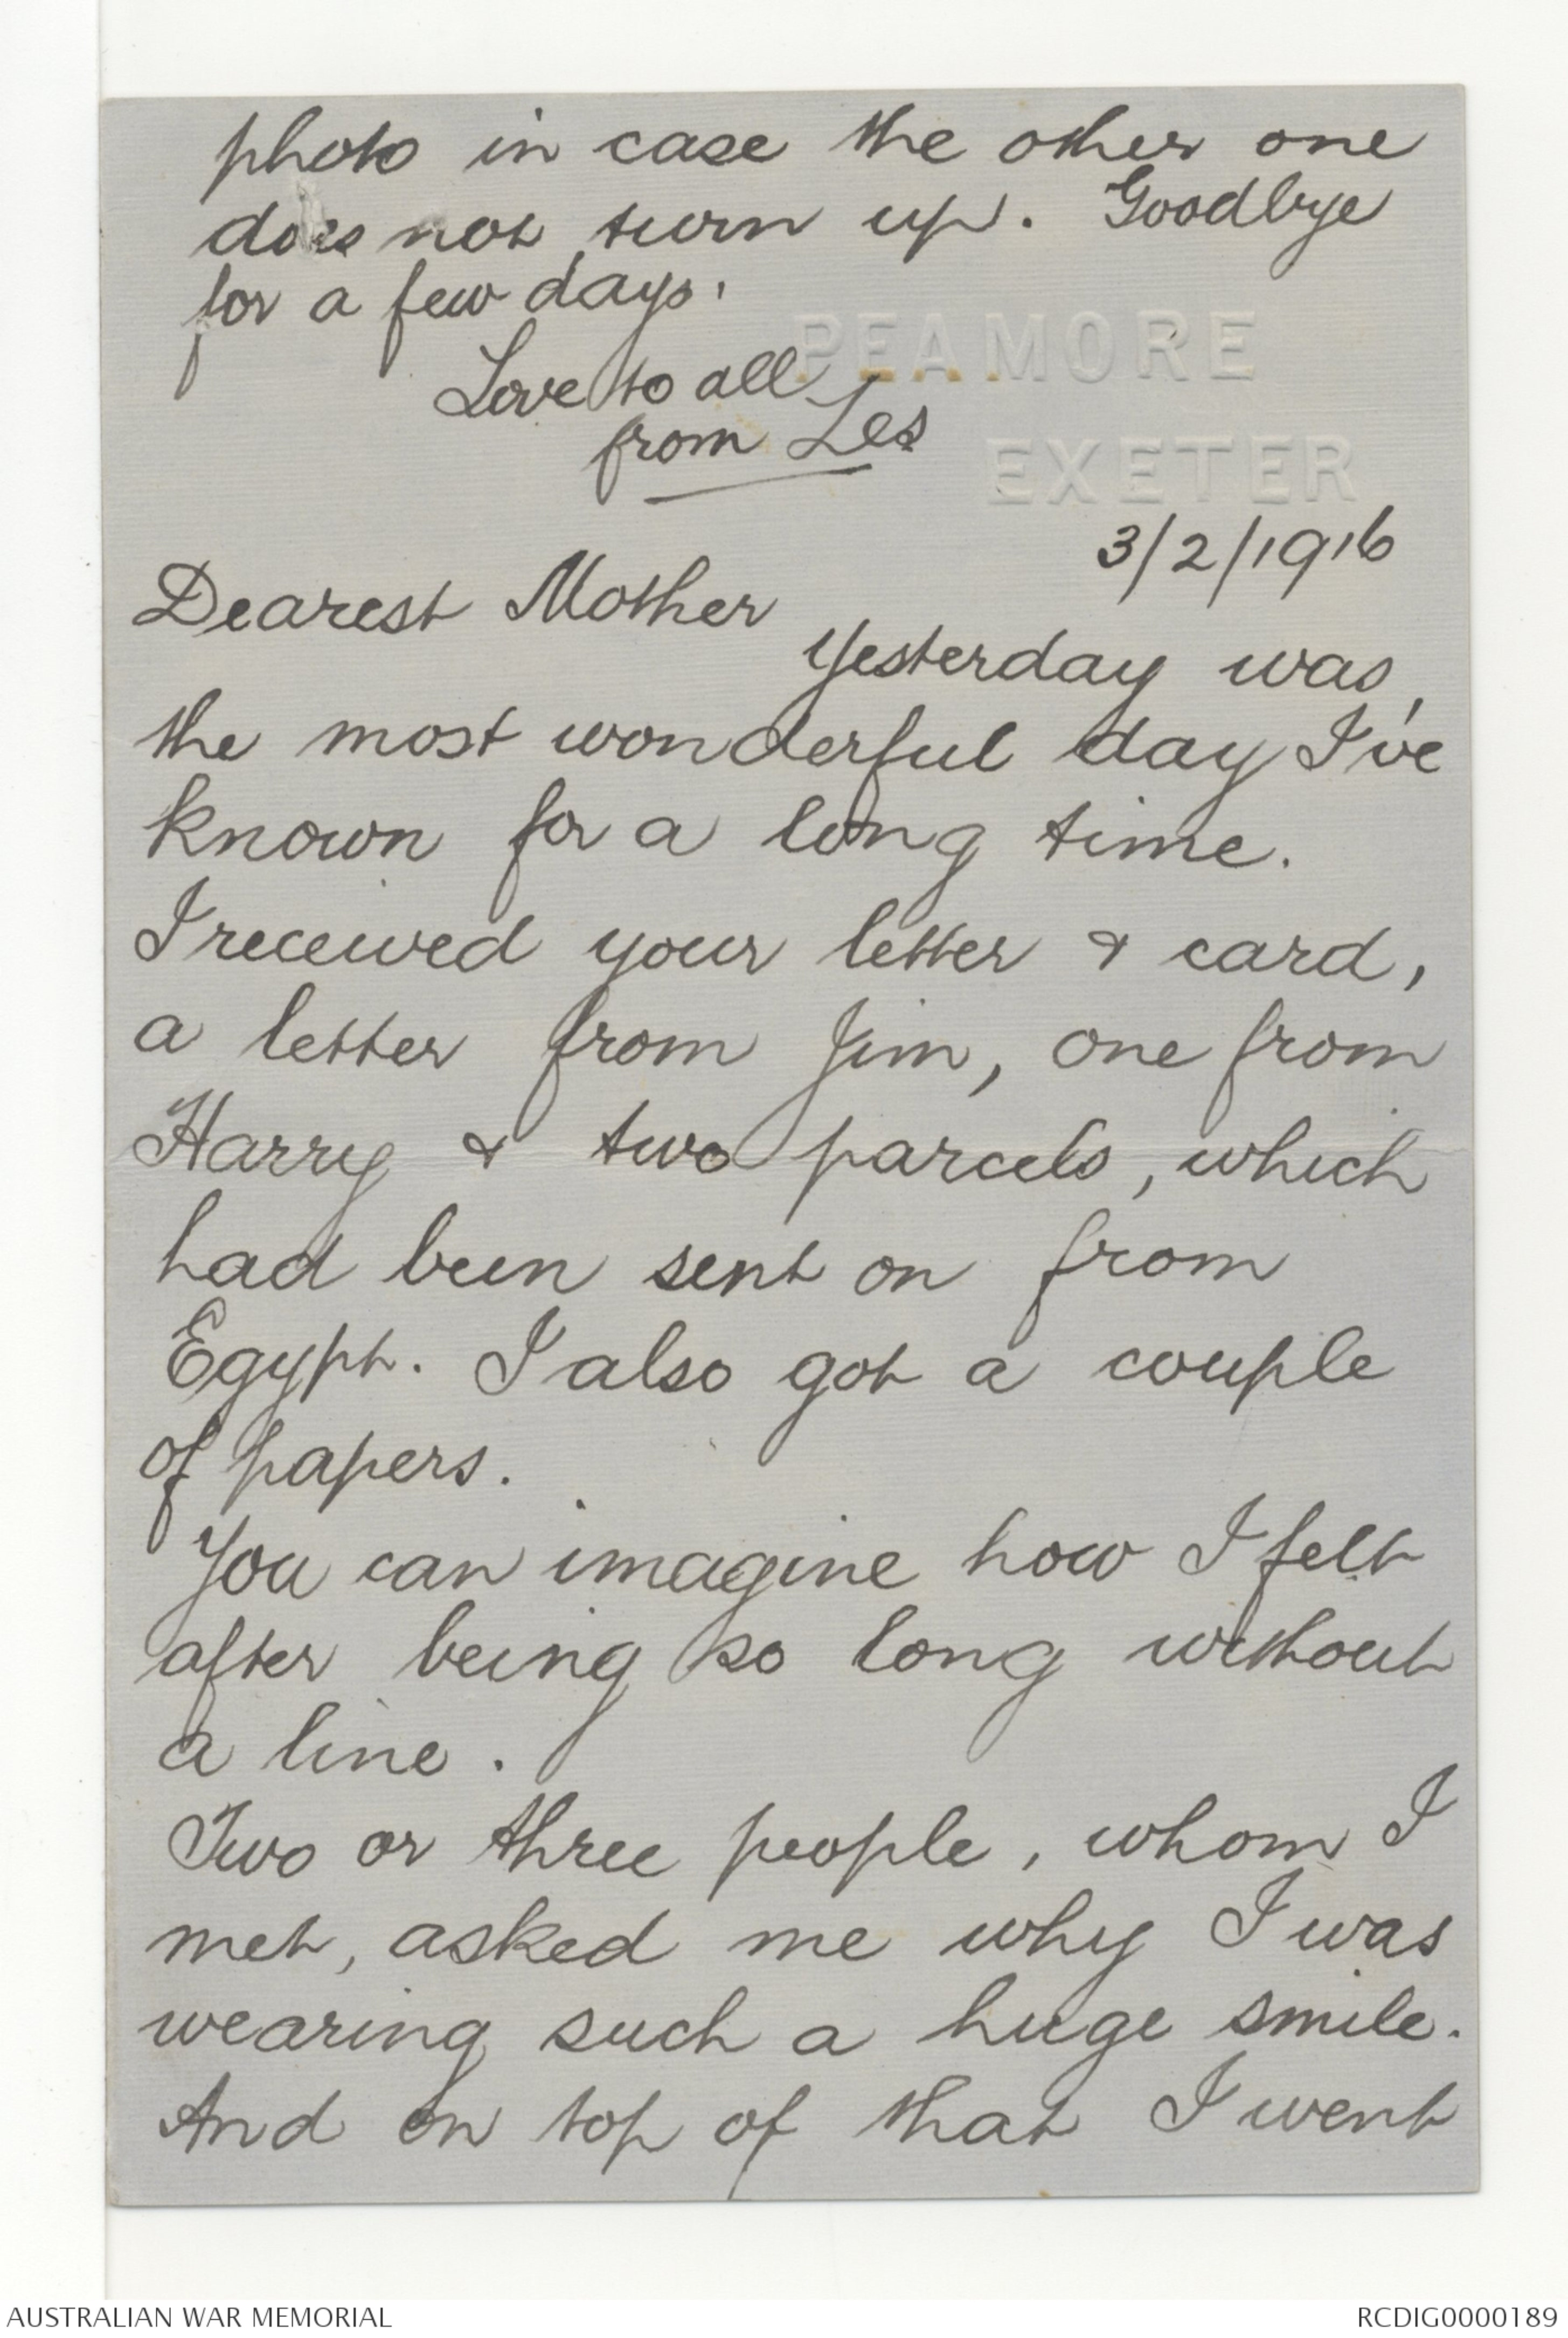 photo in case the other one
does not turn up. Goodbye
for a few days.
PEAMORE
Love to all
from Les
EXETER
3/2/1916
Dearest Mother
Yesterday was
the most wonderful day I've
known for a long time.
I received your letter & card,
a letter from Jim, one from
Harry & two parcels, which
had been sent on from
Egypt. I also got a couple
of papers.
You can imagine how I felt
after being so long without
a line.
Two or three people, whom I
met, asked me why I was
wearing such a huge smile.
And on top of that I went
AUSTRALIAN WAR MEMORIAL
RCDIG0000189